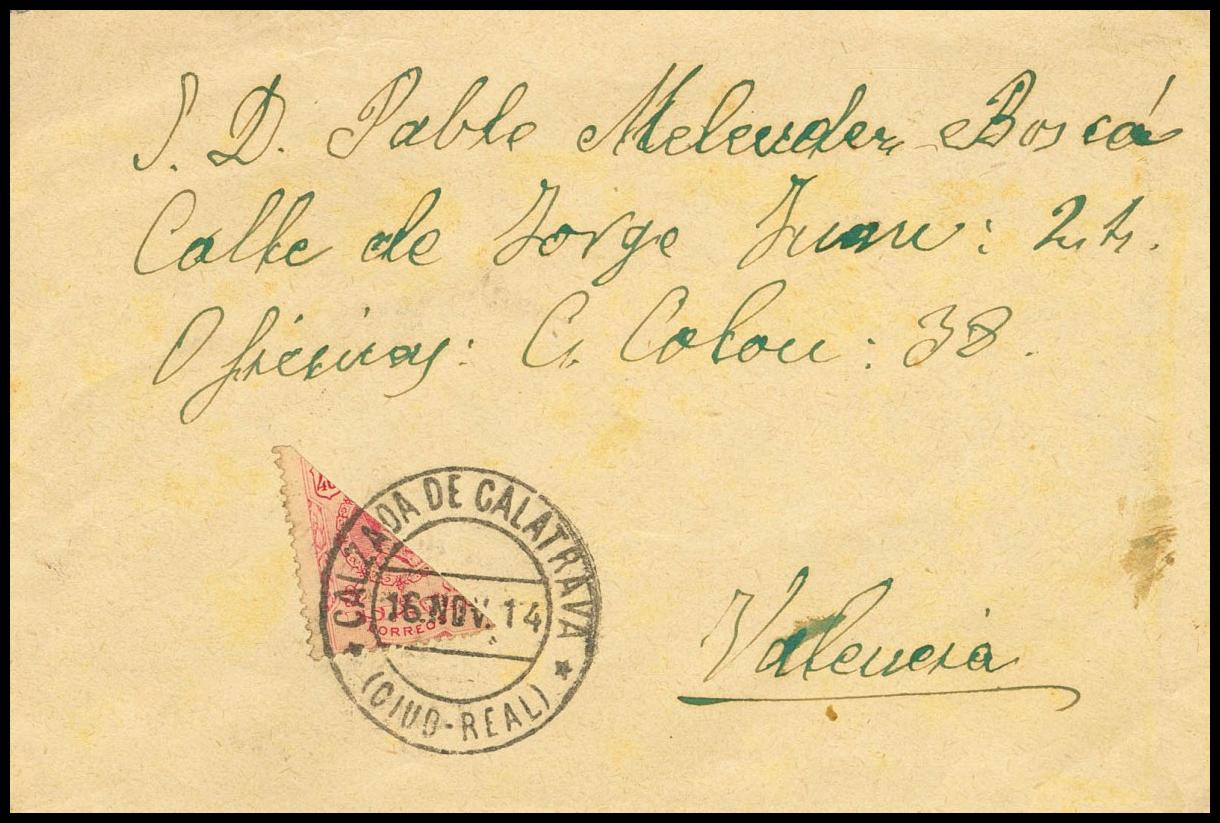 S. D. Pablo Melendez Boscá
Calle de Jorge Juan:
Oficinas: C. Colon: 38.
40
CORREO
CALZADA DE CALATRAVA
16.NOV.14
(CIUD-REAL)
Valencia